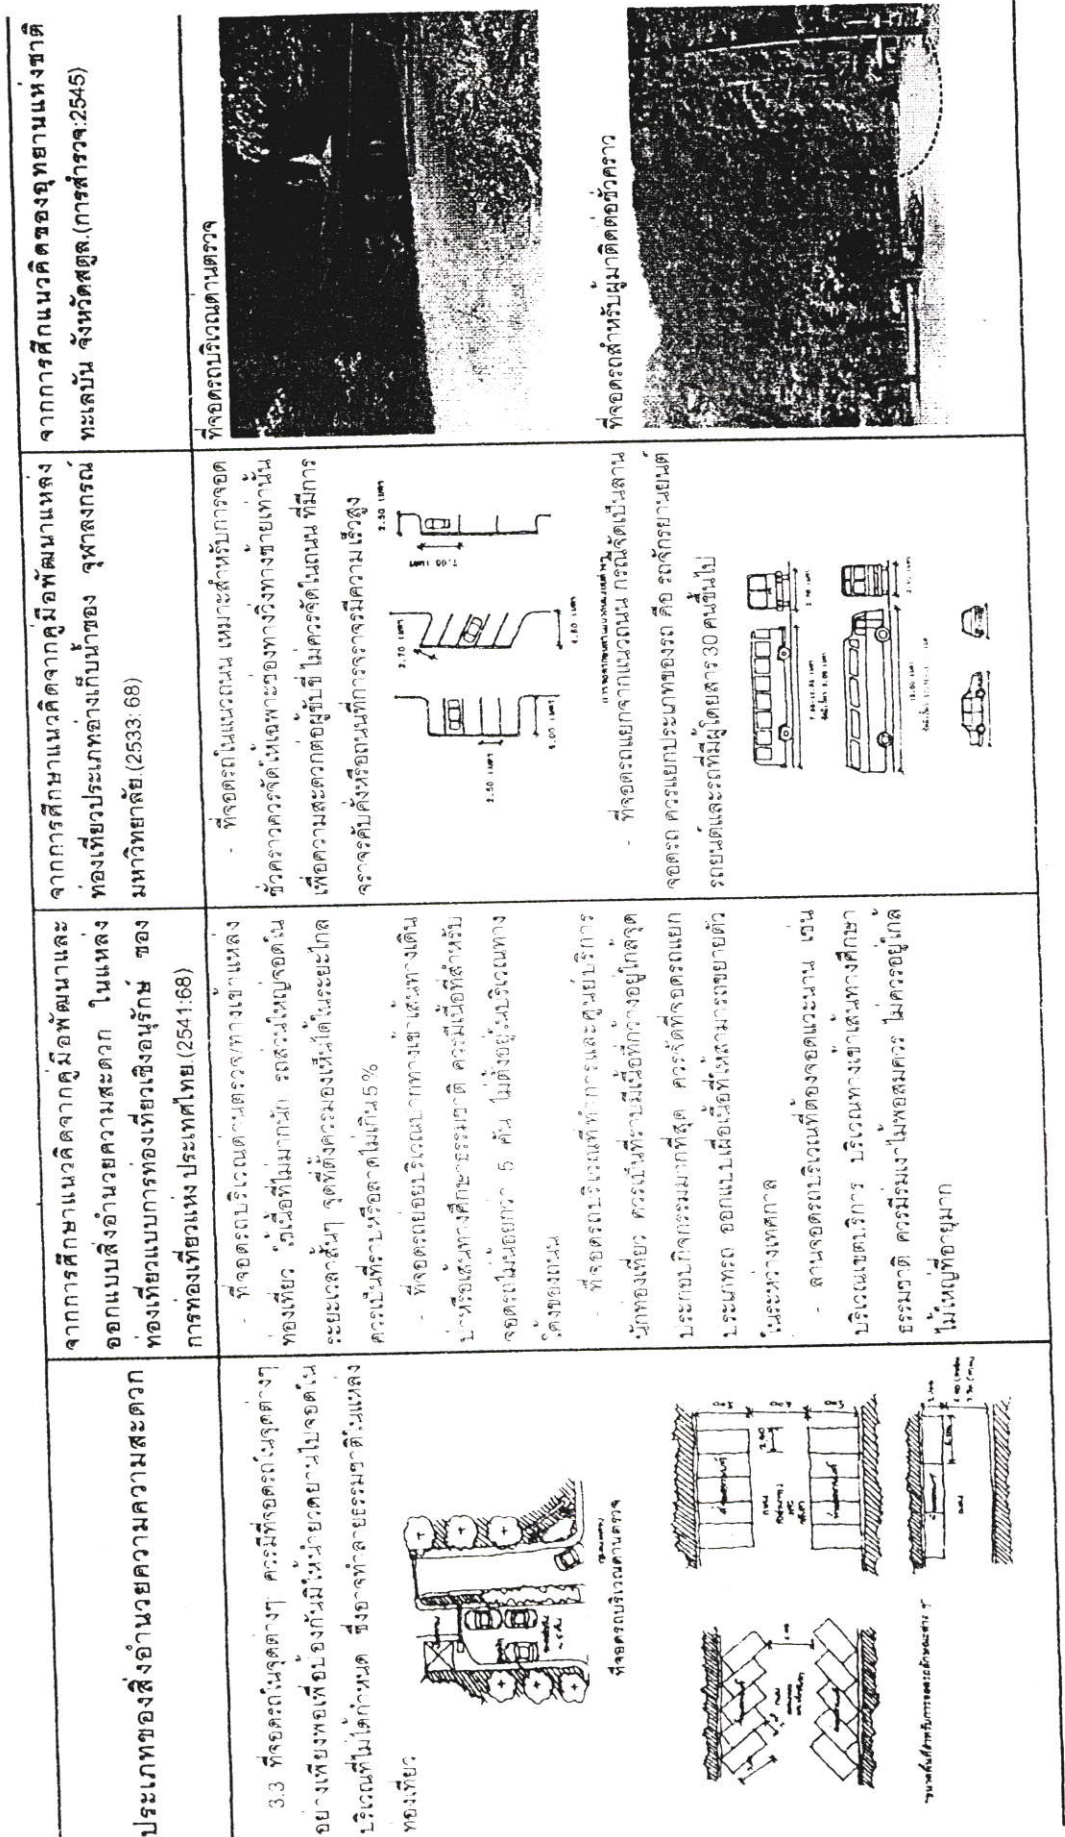 ประเภทของสิ่งอำนวยความสะดวก
จากการศึกษาแนวคิดจากคู่มือพัฒนาและ
ออกแบบสิ่งอำนวยความสะดวก ในแหล่ง
ท่องเที่ยวแบบการท่องเที่ยวเชิงอนุรักษ์ ของ
การท่องเที่ยวแห่ง ประเทศไทย.(2541:68)
จากการศึกษาแนวคิดจากคู่มือพัฒนาแหล่ง
ท่องเที่ยวประเภทอ่างเก็บน้ำของ จุฬาลงกรณ์
มหาวิทยาลัย.(2533:68)
จากการศึกแนวคิดของอุทยานแห่งชาติ
ทะเลบัน จังหวัดสตูล.(การสำรวจ:2545)
3.3 ที่จอดรถในจุดต่างๆ ควรมีที่จอดรถในจุดต่างๆ
อย่างเพียงพอเพื่อป้องกันมิให้นำยวดยานไปจอดใน
บริเวณที่ไม่ได้กำหนด ซึ่งอาจทำลายธรรมชาติในแหล่ง
ท่องเที่ยว
ที่จอดรถบริเวณด่านตรวจ
- ที่จอดรถบริเวณด่านตรวจ/ทางเข้าแหล่ง
ท่องเที่ยว ใช้เนื้อที่ไม่มากนัก รถส่วนใหญ่จอดใน
ระยะเวลาสั้นๆ จุดที่ตั้งควรมองเห็นได้ในระยะไกล
ควรเป็นที่ราบหรือลาดไม่เกิน5%
- ที่จอดรถย่อยบริเวณปากทางเข้าเส้นทางเดิน
ป่าหรือเส้นทางศึกษาธรรมชาติ ควรมีเนื้อที่สำหรับ
จอดรถไม่น้อยกว่า 5 คัน ไม่ตั้งอยู่ในบริเวณทาง
โค้งของถนน
- ที่จอดรถบริเวณที่ทำการและศูนย์บริการ
นักท่องเที่ยว ควรเป็นที่ราบมีเนื้อที่กว้างอยู่ใกล้จุด
ประกอบกิจกรรมมากที่สุด ควรจัดที่จอดรถแยก
ประเภทรถ ออกแบบเผื่อเนื้อที่ให้สามารถขยายตัว
ในระหว่างเทศกาล
- ลานจอดรถบริเวณที่ต้องจอดแวะนาน เช่น
บริเวณเขตบริการ บริเวณทางเข้าเส้นทางศึกษา
ธรรมชาติ ควรมีร่มเงาไม้พอสมควร ไม่ควรอยู่ใกล้
ไม้ใหญ่ที่อายุมาก
- ที่จอดรถในแนวถนน เหมาะสำหรับการจอด
ชั่วคราวควรจัดให้เฉพาะของทางวิ่งทางซ้ายเท่านั้น
เพื่อความสะดวกต่อผู้ขับขี่ ไม่ควรจัดในถนน ที่มีการ
จราจรคับคั่งหรือถนนที่การจราจรมีความเร็วสูง
2.50 เมตร
2.70 เมตร
2.50 เมตร
- ที่จอดรถแยกจากแนวถนน กรณีจัดเป็นลาน
จอดรถ ควรแยกประเภทของรถ คือ รถจักรยานยนต์
รถยนต์และรถที่มีผู้โดยสาร 30 คนขึ้นไป
ที่จอดรถบริเวณด่านตรวจ
ที่จอดรถสำหรับผู้มาติดต่อชั่วคราว